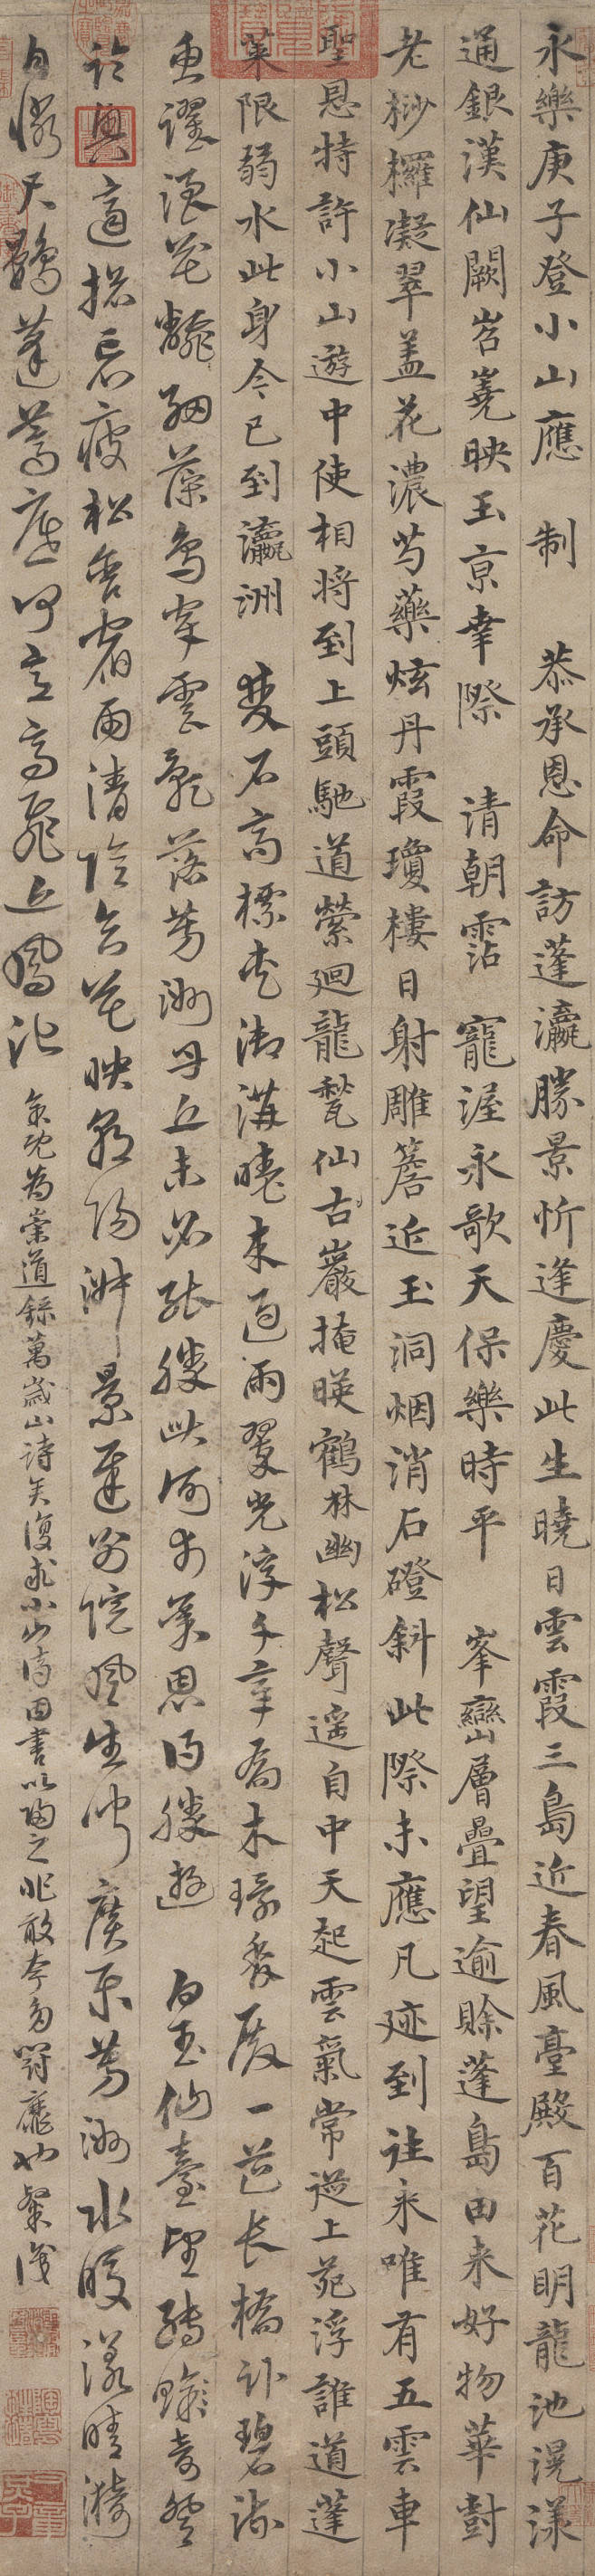 永樂庚子登小山應 制 恭承恩命訪蓬瀛勝景忻逢慶此生曉日雲霞三島近春風臺殿百花明龍池滉漾
通銀漢仙闕岧嶤映玉京幸際 清朝霑 寵渥永歌天保樂時平 峯巒層疊望逾賒蓬島由来好物華對
老桫欏凝翠盖花濃芍藥炫丹霞瓊樓日射雕簷近玉洞烟消石磴斜此際未應凡迹到往来唯有五雲車
聖恩特許小山遊中使相將到上頭馳道縈廻龍甃仙古巖掩暎鶴林幽松聲遥自中天起雲氣常從上苑浮誰道蓬
萊限弱水此身今已到瀛洲 雙石高標夾御溝曉来過雨翠光浮千章喬木一道長橋卧碧流
魚躍浪花翻細藻鳥穿雲影落芳洲丹丘未必能勝此何幸蒙恩得勝遊 白玉仙臺望轉奇登
興適忘疲松含宿雨清陰合花映朝陽淑景遲别院風生聞廣樂芳洲水暖漾晴漪
自慚尺鷃蓬蒿底何意高飛上鳳池 余既為崇道錄萬歲山詩矣復求小山詩因書以歸之非敢夸多鬪靡也粲識